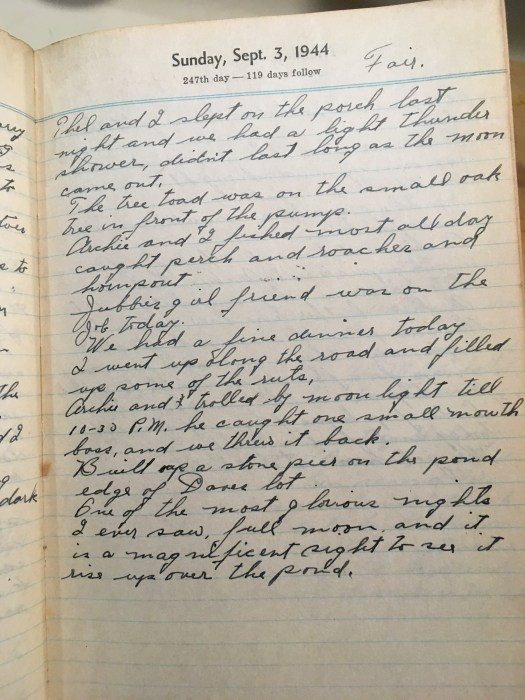 Sunday, Sept. 3, 1944
247th day — 119 days follow
Fair.
Phil and I slept on the porch last
night and we had a light thunder
shower, didnt last long as the moon
came out.
The tree toad was on the small oak
tree in front of the pump.
Archie and I fished most all day
caught perch and roaches and
hornpout
girl friend was on the
job today.
We had a fine dinner today
I went up along the road and filled
up some of the ruts,
Archie and I trolled by moonlight till
10-30 P.M. he caught one small mouth
bass, and we threw it back.
Built up a stone pier on the pond
edge of Daves lot
One of the most glorious nights
I ever saw, full moon and it
is a magnificent sight to see it
rise up over the pond.
the
dark